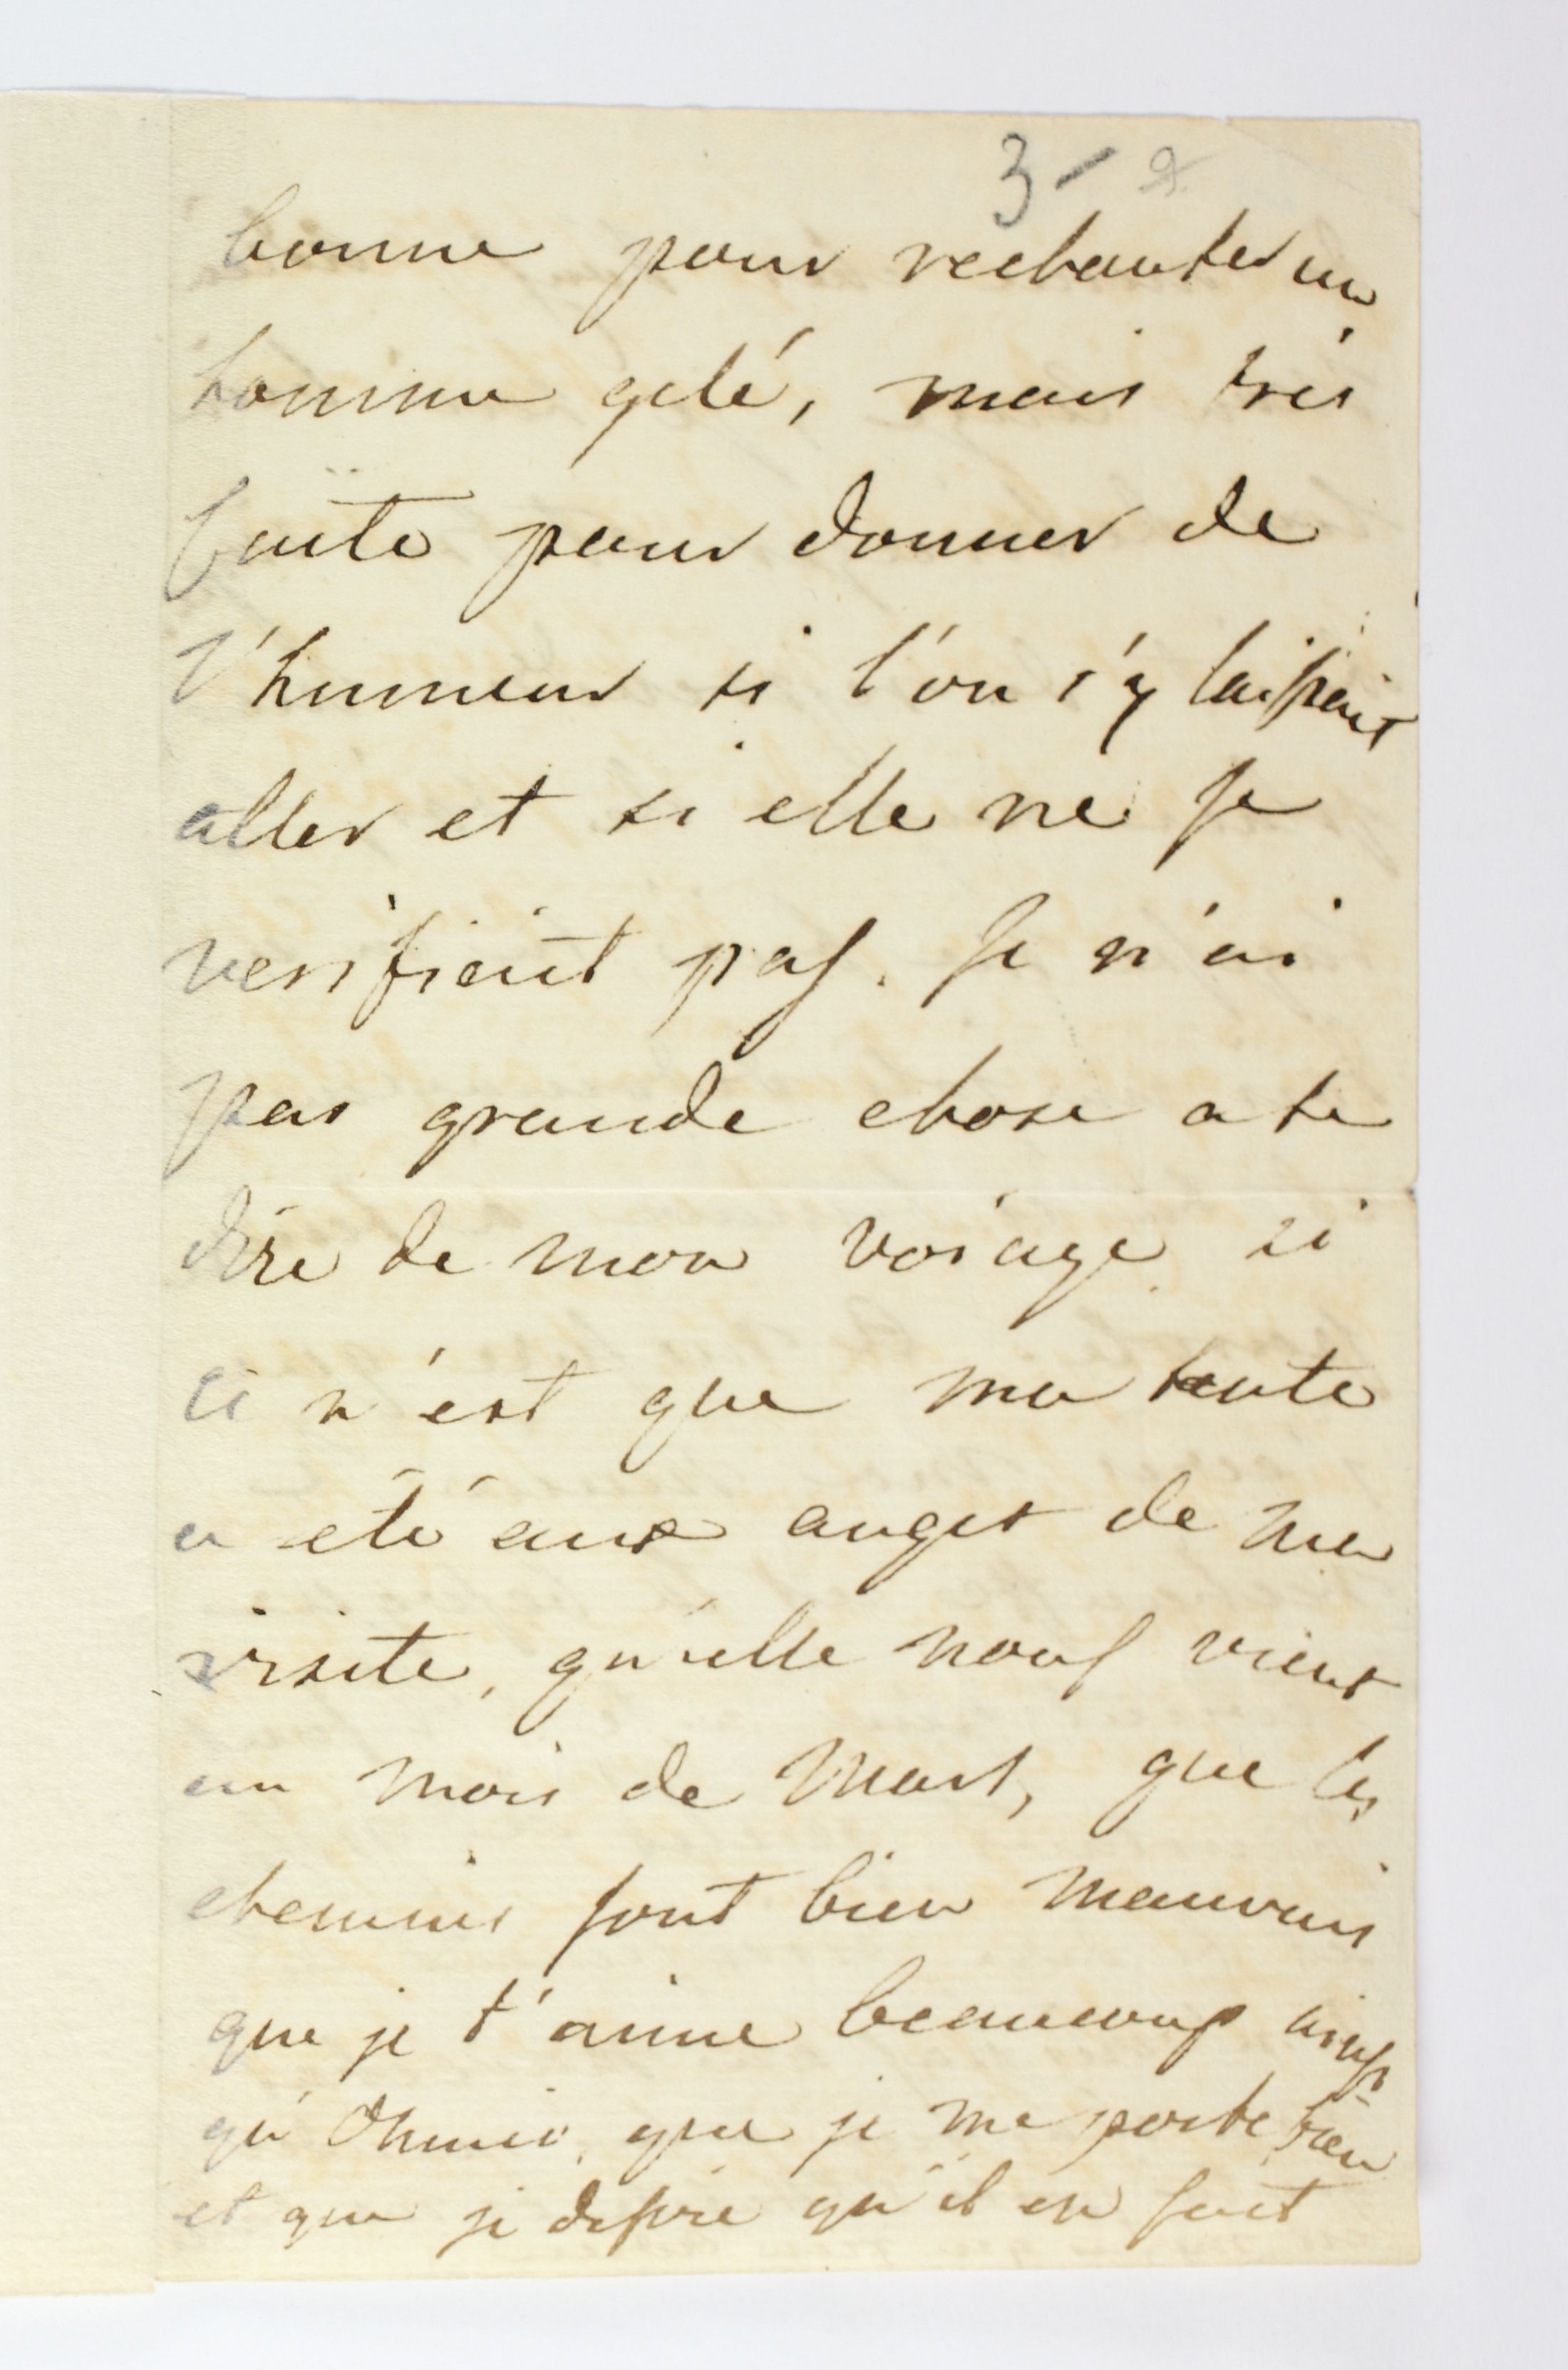 3 - 2
bonne pour rechauter un
homme gelé, mais très
faite pour donner de
l'humeur si l'on s'y laissait
aller et si elle ne se
verifiait pas. Je n'ai
pas grande chose a te
dire de mon voiage si
ci n'est que ma tante
a été aux anges de ma
visite, qu'elle nous vient
au mois de Mars, que les
chemins sont bien mauvais
que je t'aime beaucoup ainsi
qu' que je me porte bien
et que je desire qu'il en soit